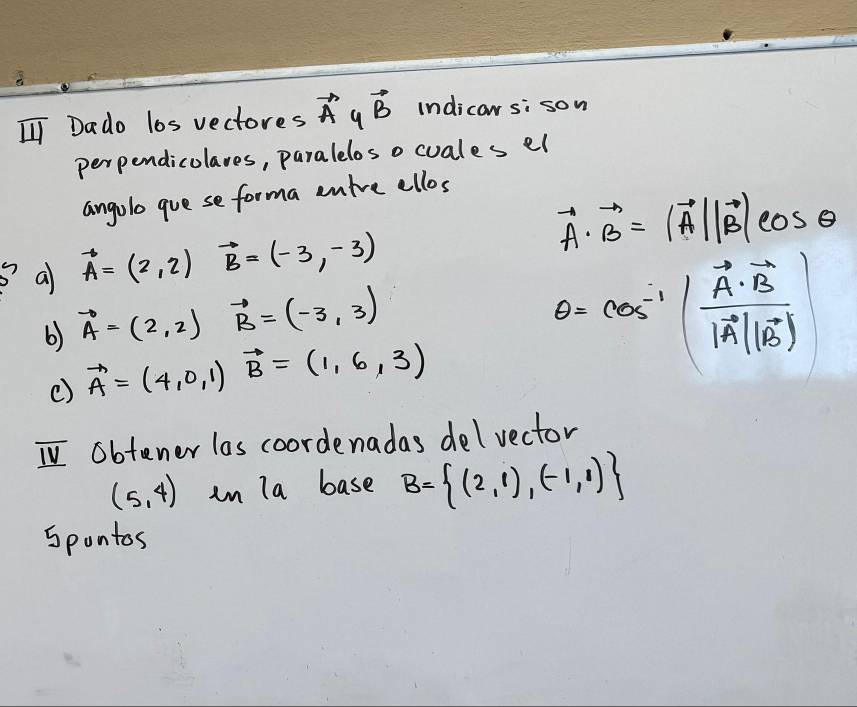 III Dado los vectores A⃗ y B⃗ indicar si son
perpendiculares, paralelos o cuales el
angulo que se forma entre ellos
a) A⃗ = (2,2) B⃗ = (-3,-3)
b) A⃗ = (2,2) B⃗ = (-3,3)
c) A⃗ = (4,0,1) B⃗ = (1,6,3)
A⃗ · B⃗ = |A⃗||B⃗| cos θ
θ = cos⁻¹ (A⃗ · B⃗ / |A⃗||B⃗|)
IV Obtener las coordenadas del vector
(5,4) en la base B={(2,1),(-1,1)}
5 puntos